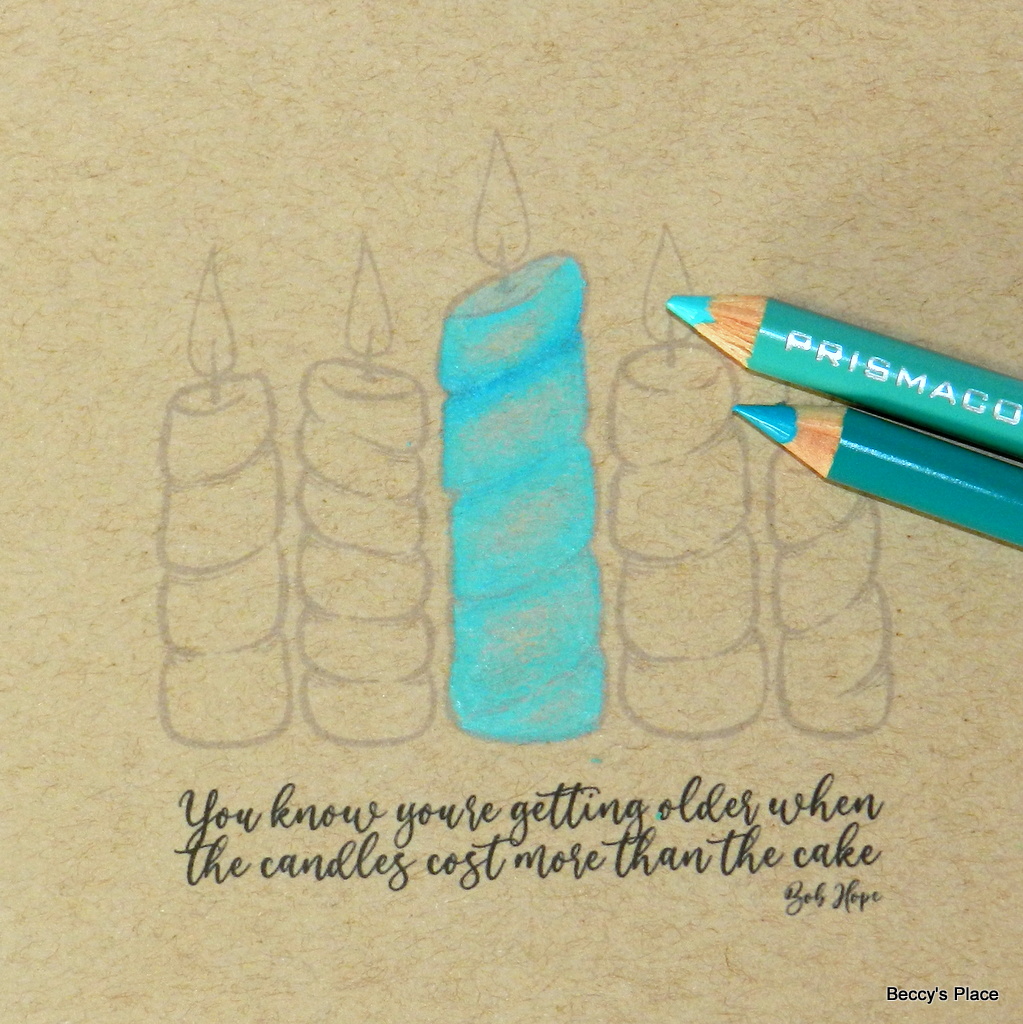 PRISMACO
You know you're getting older when
the candles cost more than the cake
Bob Hope
Beccy's Place